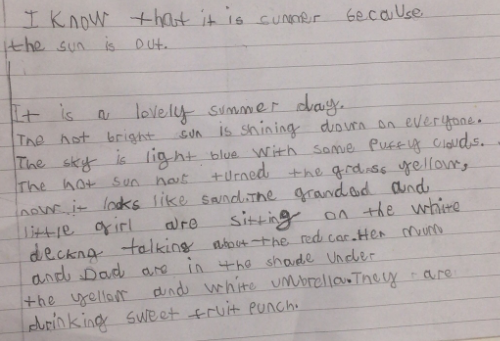 I know that it is summer because
the sun is out.
It is a lovely summer day.
The hot bright sun is shining down on everyone.
The sky is light blue with some puffy clouds.
The hot sun has turned the grass yellow,
now it looks like sand. The grandad and
little girl are sitting on the white
deckng talking about the red car. Her mum
and Dad are in the shade under
the yellow and white umbrella. They are
drinking sweet fruit punch.